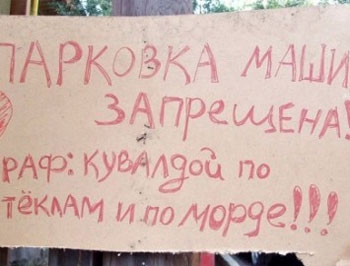 ПАРКОВКА МАШИ
ЗАПРЕЩЕНА!
РАФ: КУВАЛДОЙ ПО
ТЁКЛАМ И ПО МОРДЕ!!!